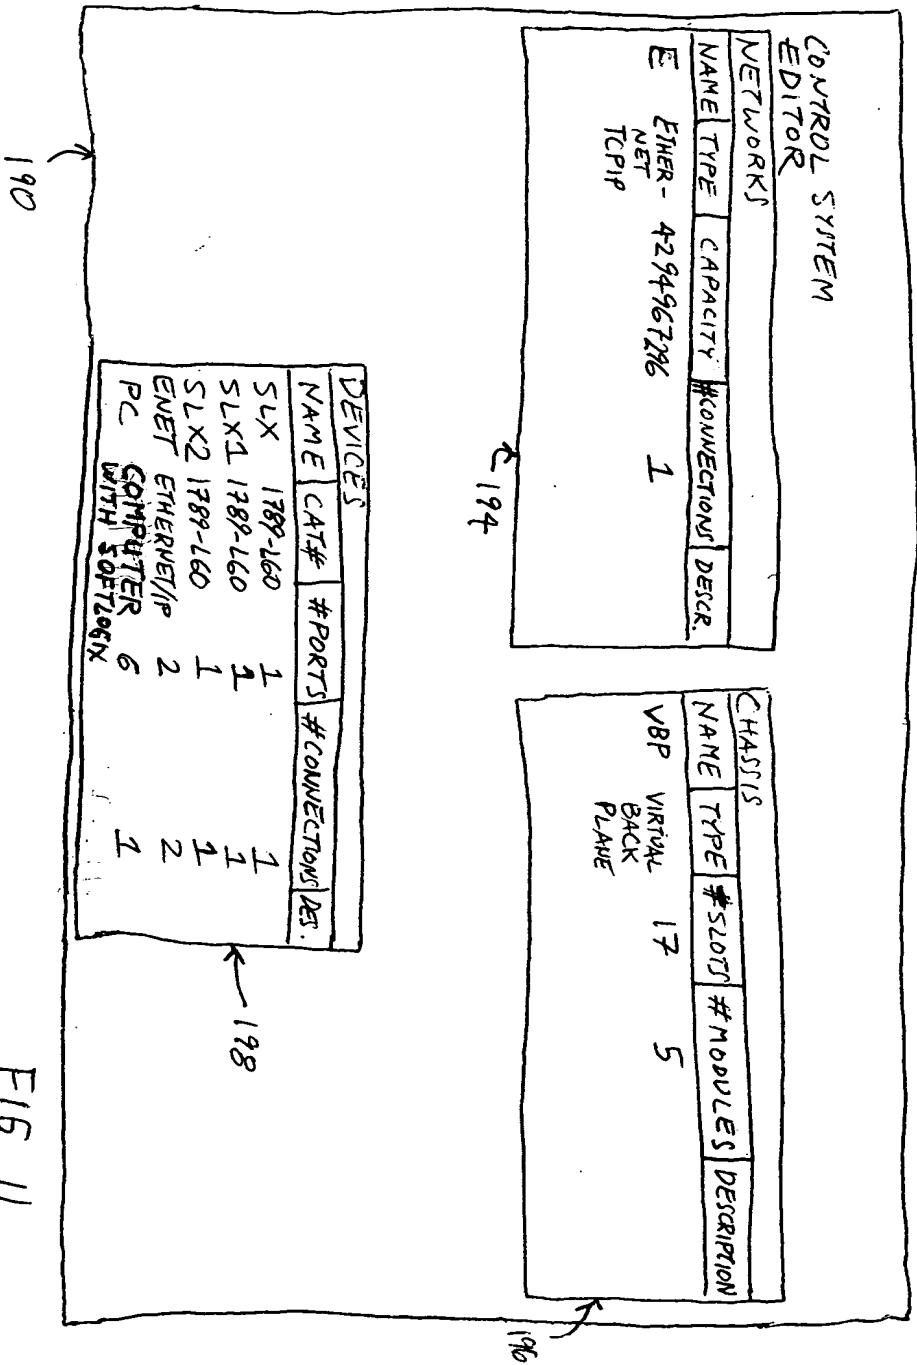 CONTROL SYSTEM
EDITOR
NETWORKS
NAME TYPE CAPACITY #CONNECTIONS DESCR.
E ETHER- 4294967296 1
NET
TCPIP
194
CHASSIS
NAME TYPE #SLOTS #MODULES DESCRIPTION
VBP VIRTUAL 17 5
BACK
PLANE
196
DEVICES
NAME CAT# #PORTS #CONNECTIONS DES.
SLX 1789-L60 1 1
SLX1 1789-L60 1 1
SLX2 1789-L60 1 1
ENET ETHERNET/IP 2 2
PC COMPUTER 6 1
WITH SOFTLOGIX
198
190
FIG 11